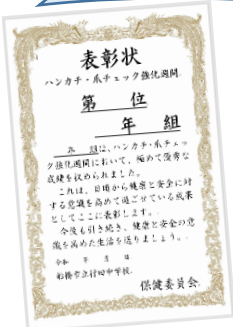 表彰状
ハンカチ・爪チェック強化週間
第　位
年　組
組は、ハンカチ・爪チェッ
ク強化週間において、極めて優秀な
成績を収められました。
これは、日頃から健康と安全に対
する意識を高めて過ごせている成果
としてここに表彰します。
今後も引き続き、健康と安全の意
識を高めた生活を送りましょう。
令和　年　月　日
船橋市立行田中学校
保健委員会